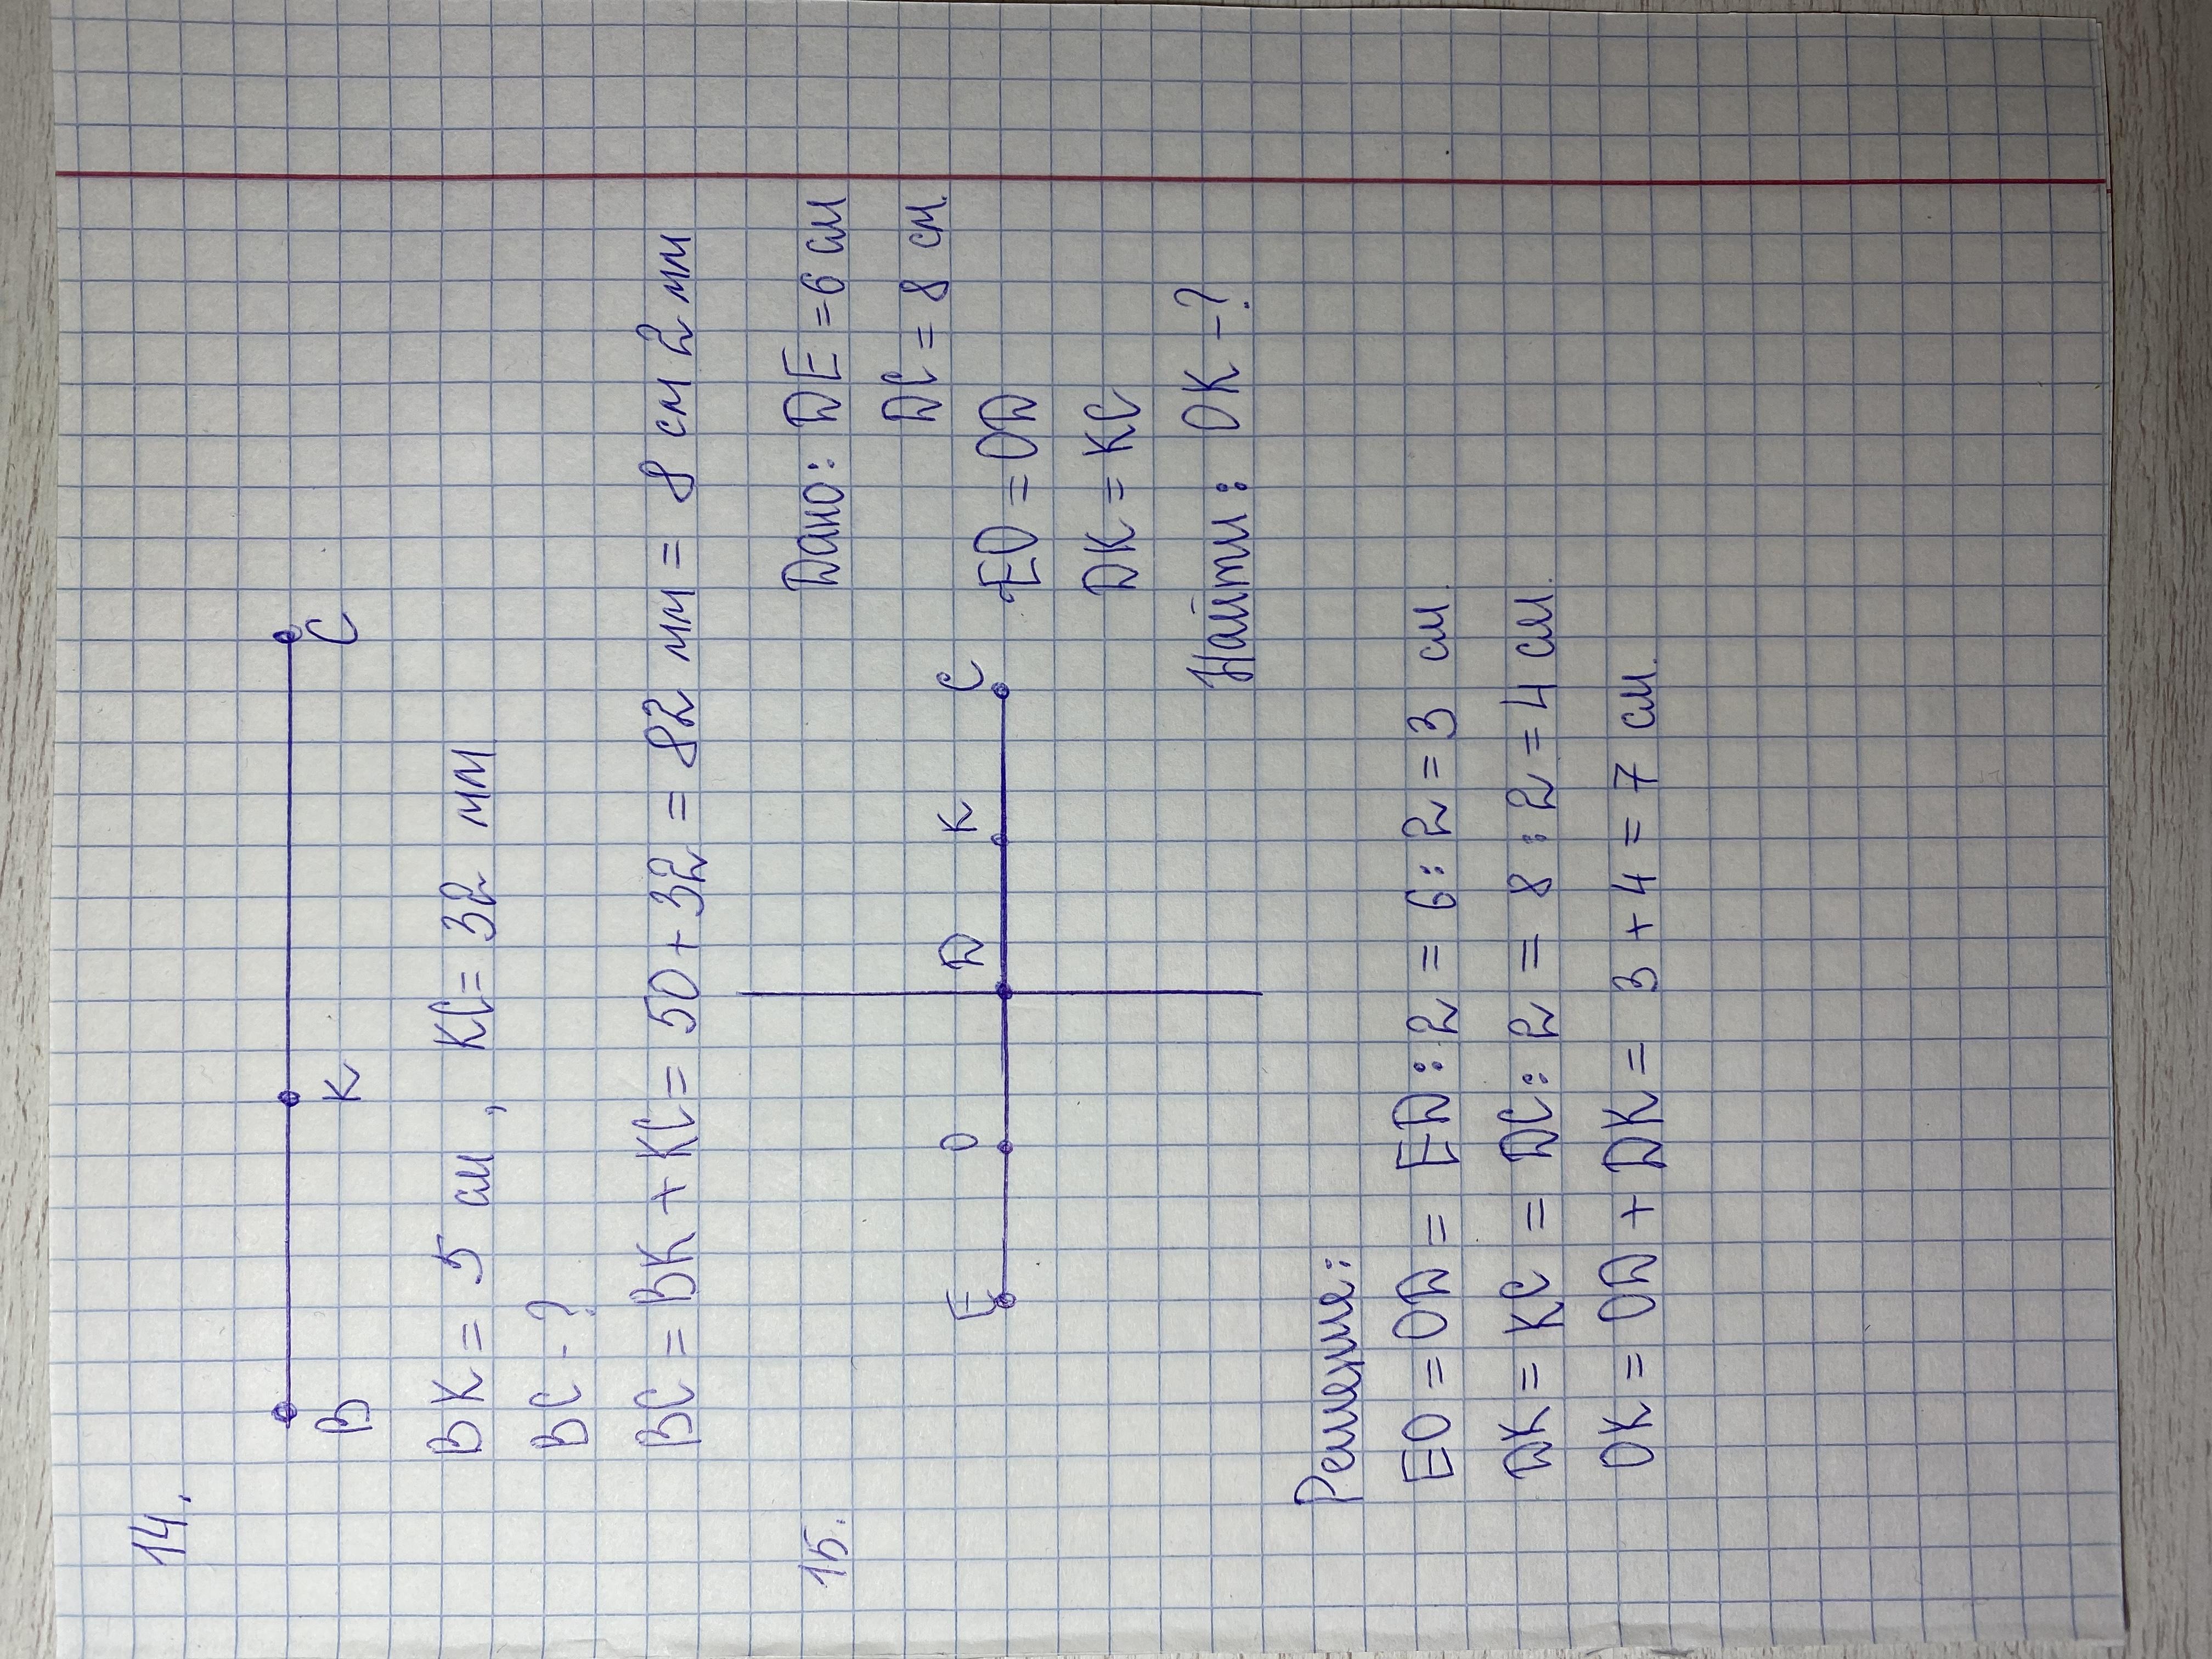 14.
B K C
BK = 5 см, KC = 32 мм
BC - ?
BC = BK + KC = 50 + 32 = 82 мм = 8 см 2 мм
15.
Дано: DE = 6 см
DC = 8 см.
E O D K C
EO = OD
DK = KC
Найти: OK - ?
Решение:
EO = OD = ED : 2 = 6 : 2 = 3 см.
DK = KC = DC : 2 = 8 : 2 = 4 см.
OK = OD + DK = 3 + 4 = 7 см.